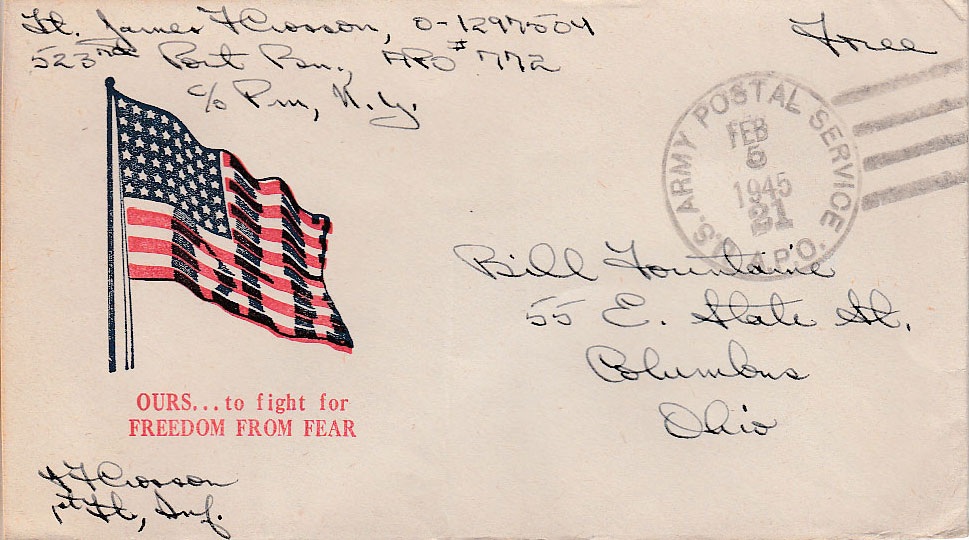 Lt. James F Crosson, O-1297504
523rd Port Bn., APO #772
c/o Pm, N.Y.
Free
U.S. ARMY POSTAL SERVICE
A.P.O.
FEB
5
1945
21
Bill Fountaine
55 E. State St.
Columbus
Ohio
OURS...to fight for
FREEDOM FROM FEAR
J F Crosson
1st Lt, Inf.